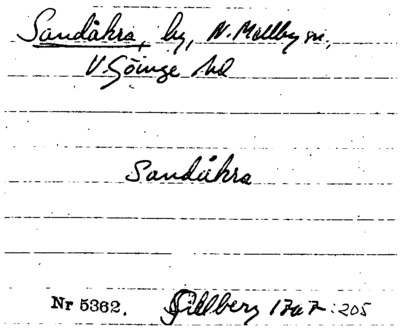 Sandåkra, by, N. Mellby sn,
V. Göinge hd
Sandåkra
Nr 5362. Gillberg 1767:205